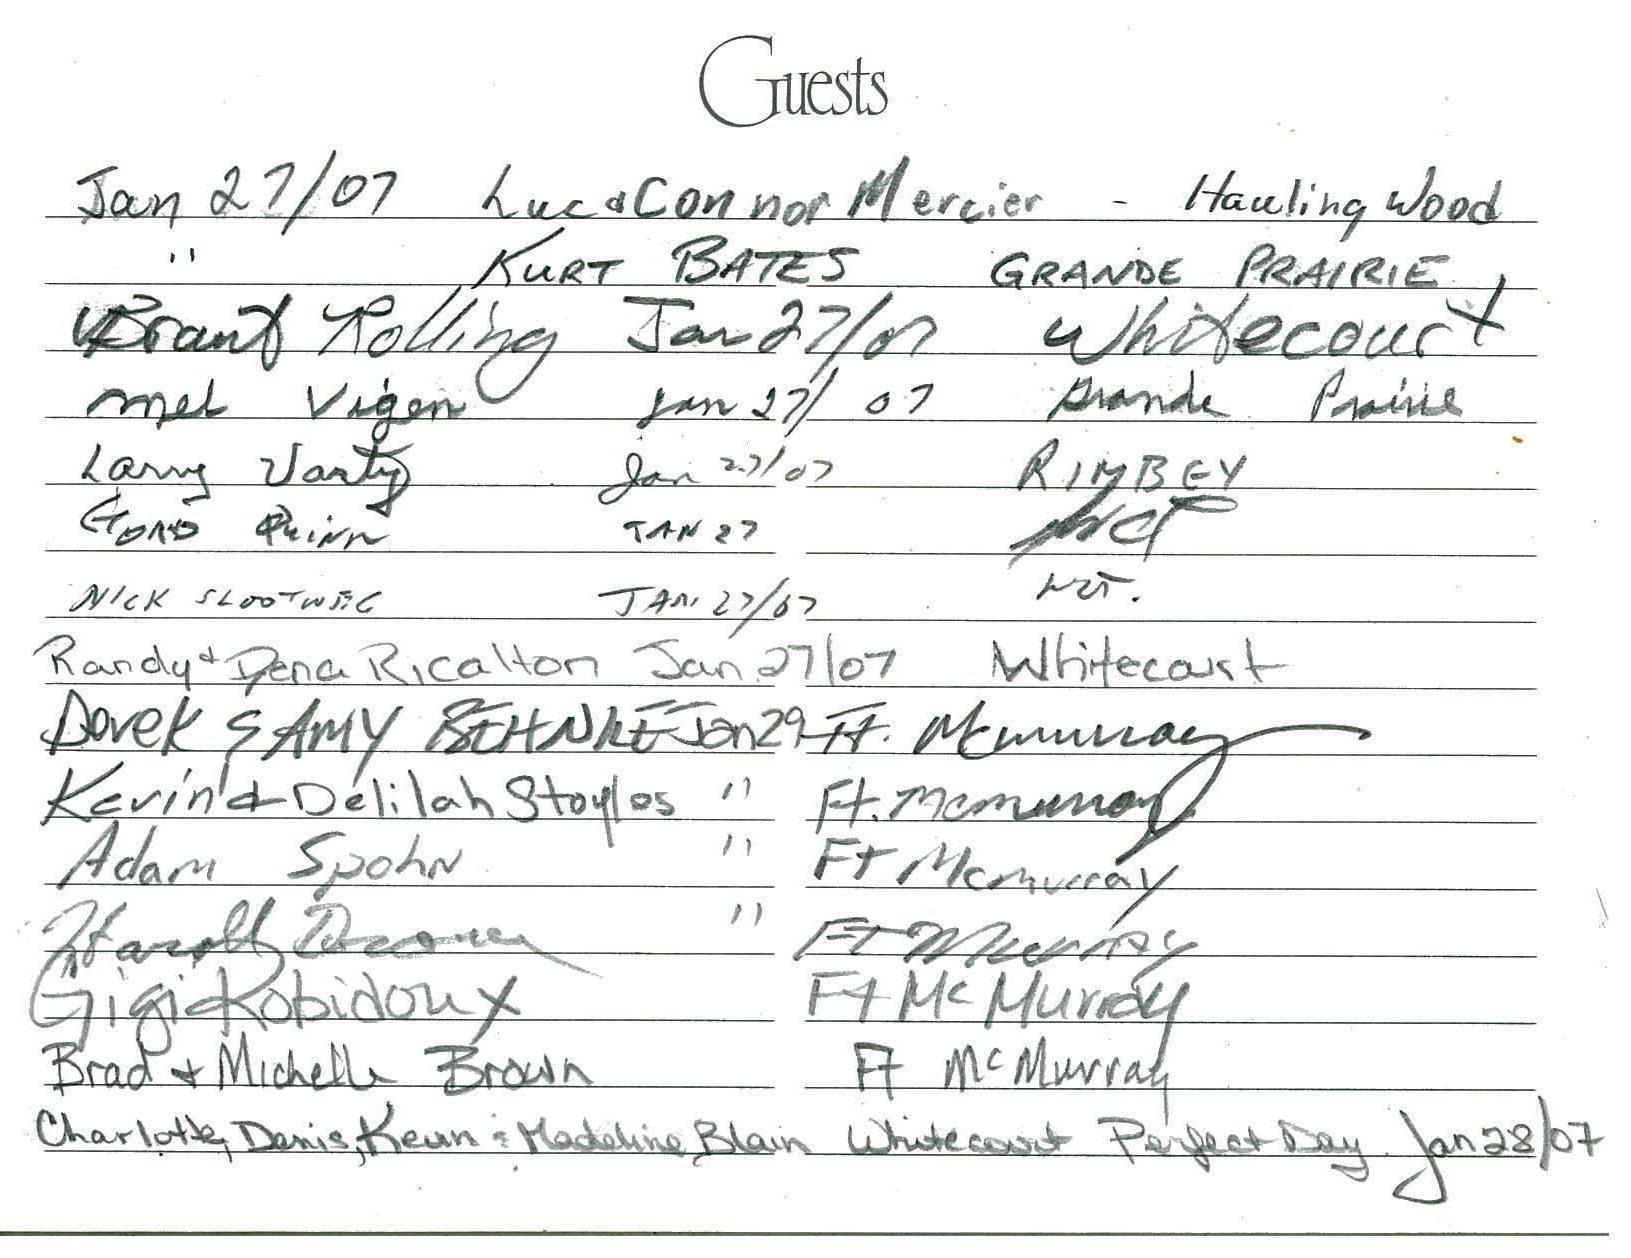 Guests
Jan 27/07 Luc & Connor Mercier - Hauling Wood
" KURT BATES GRANDE PRAIRIE
Brant Rolling Jan 27/07 Whitecourt
Mel Vigen Jan 27/07 Grande Prairie
Larry Varty Jan 27/07 RIMBEY
GORD Quinn JAN 27
NICK SLOOTWEG JAN 27/07
Randy & Dena Ricalton Jan 27/07 Whitecourt
Derek & AMY BEHNKE Jan 29 Ft. Mcmurray
Kevin & Delilah Stoyles " Ft. Mcmurray
Adam Spohn " Ft Mcmurray
Harold " Ft McMurray
Gigi Robidoux Ft McMurray
Brad & Michelle Brown Ft McMurray
Charlotte, Denis, Kevin & Madeline Blain Whitecourt Perfect Day. Jan 28/07